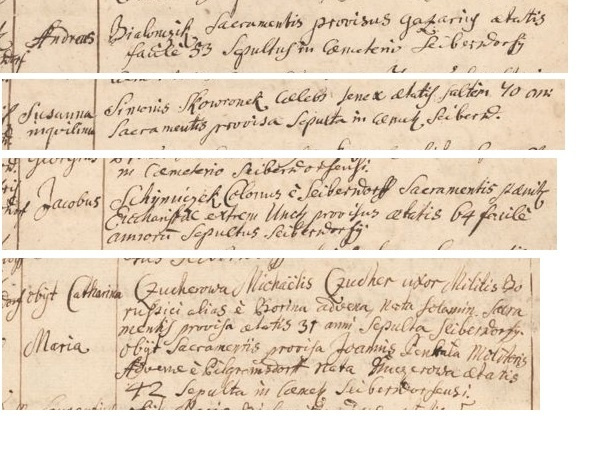 Andreas Bialonczik Sacramentis provisus gazarius ætatis
facile 53 Sepultus in Cæmeterio Seiberdorfÿ
Susanna Simonis Skowronek Cælebs senex ætatis saltem 70 an:
inquilina Sacramentis provisa Sepulta in Cæmet: Seiberd.
Georgius
in Cæmeterio Seiberdorfensi.
Jacobus Colonus è Seiberdorff Sacramentis Pænit:
Eucharistiæ extrem Unct: provisus ætatis 64 facile
annoru Sepultus Seiberdorfÿ
obijt Catharina Czucherowa Michaelis Czucher uxor Militis Bo
alias è Borina advena, Nata Sacra
mentis provisa ætatis 31 anni Sepulta Seiberdorfÿ.
Maria obijt Sacramentis provisa Joannis Molitoris
Advenæ è Pilgramsdorf nata ætatis
42 Sepulta in Cæmet: Seiberdorfensi.